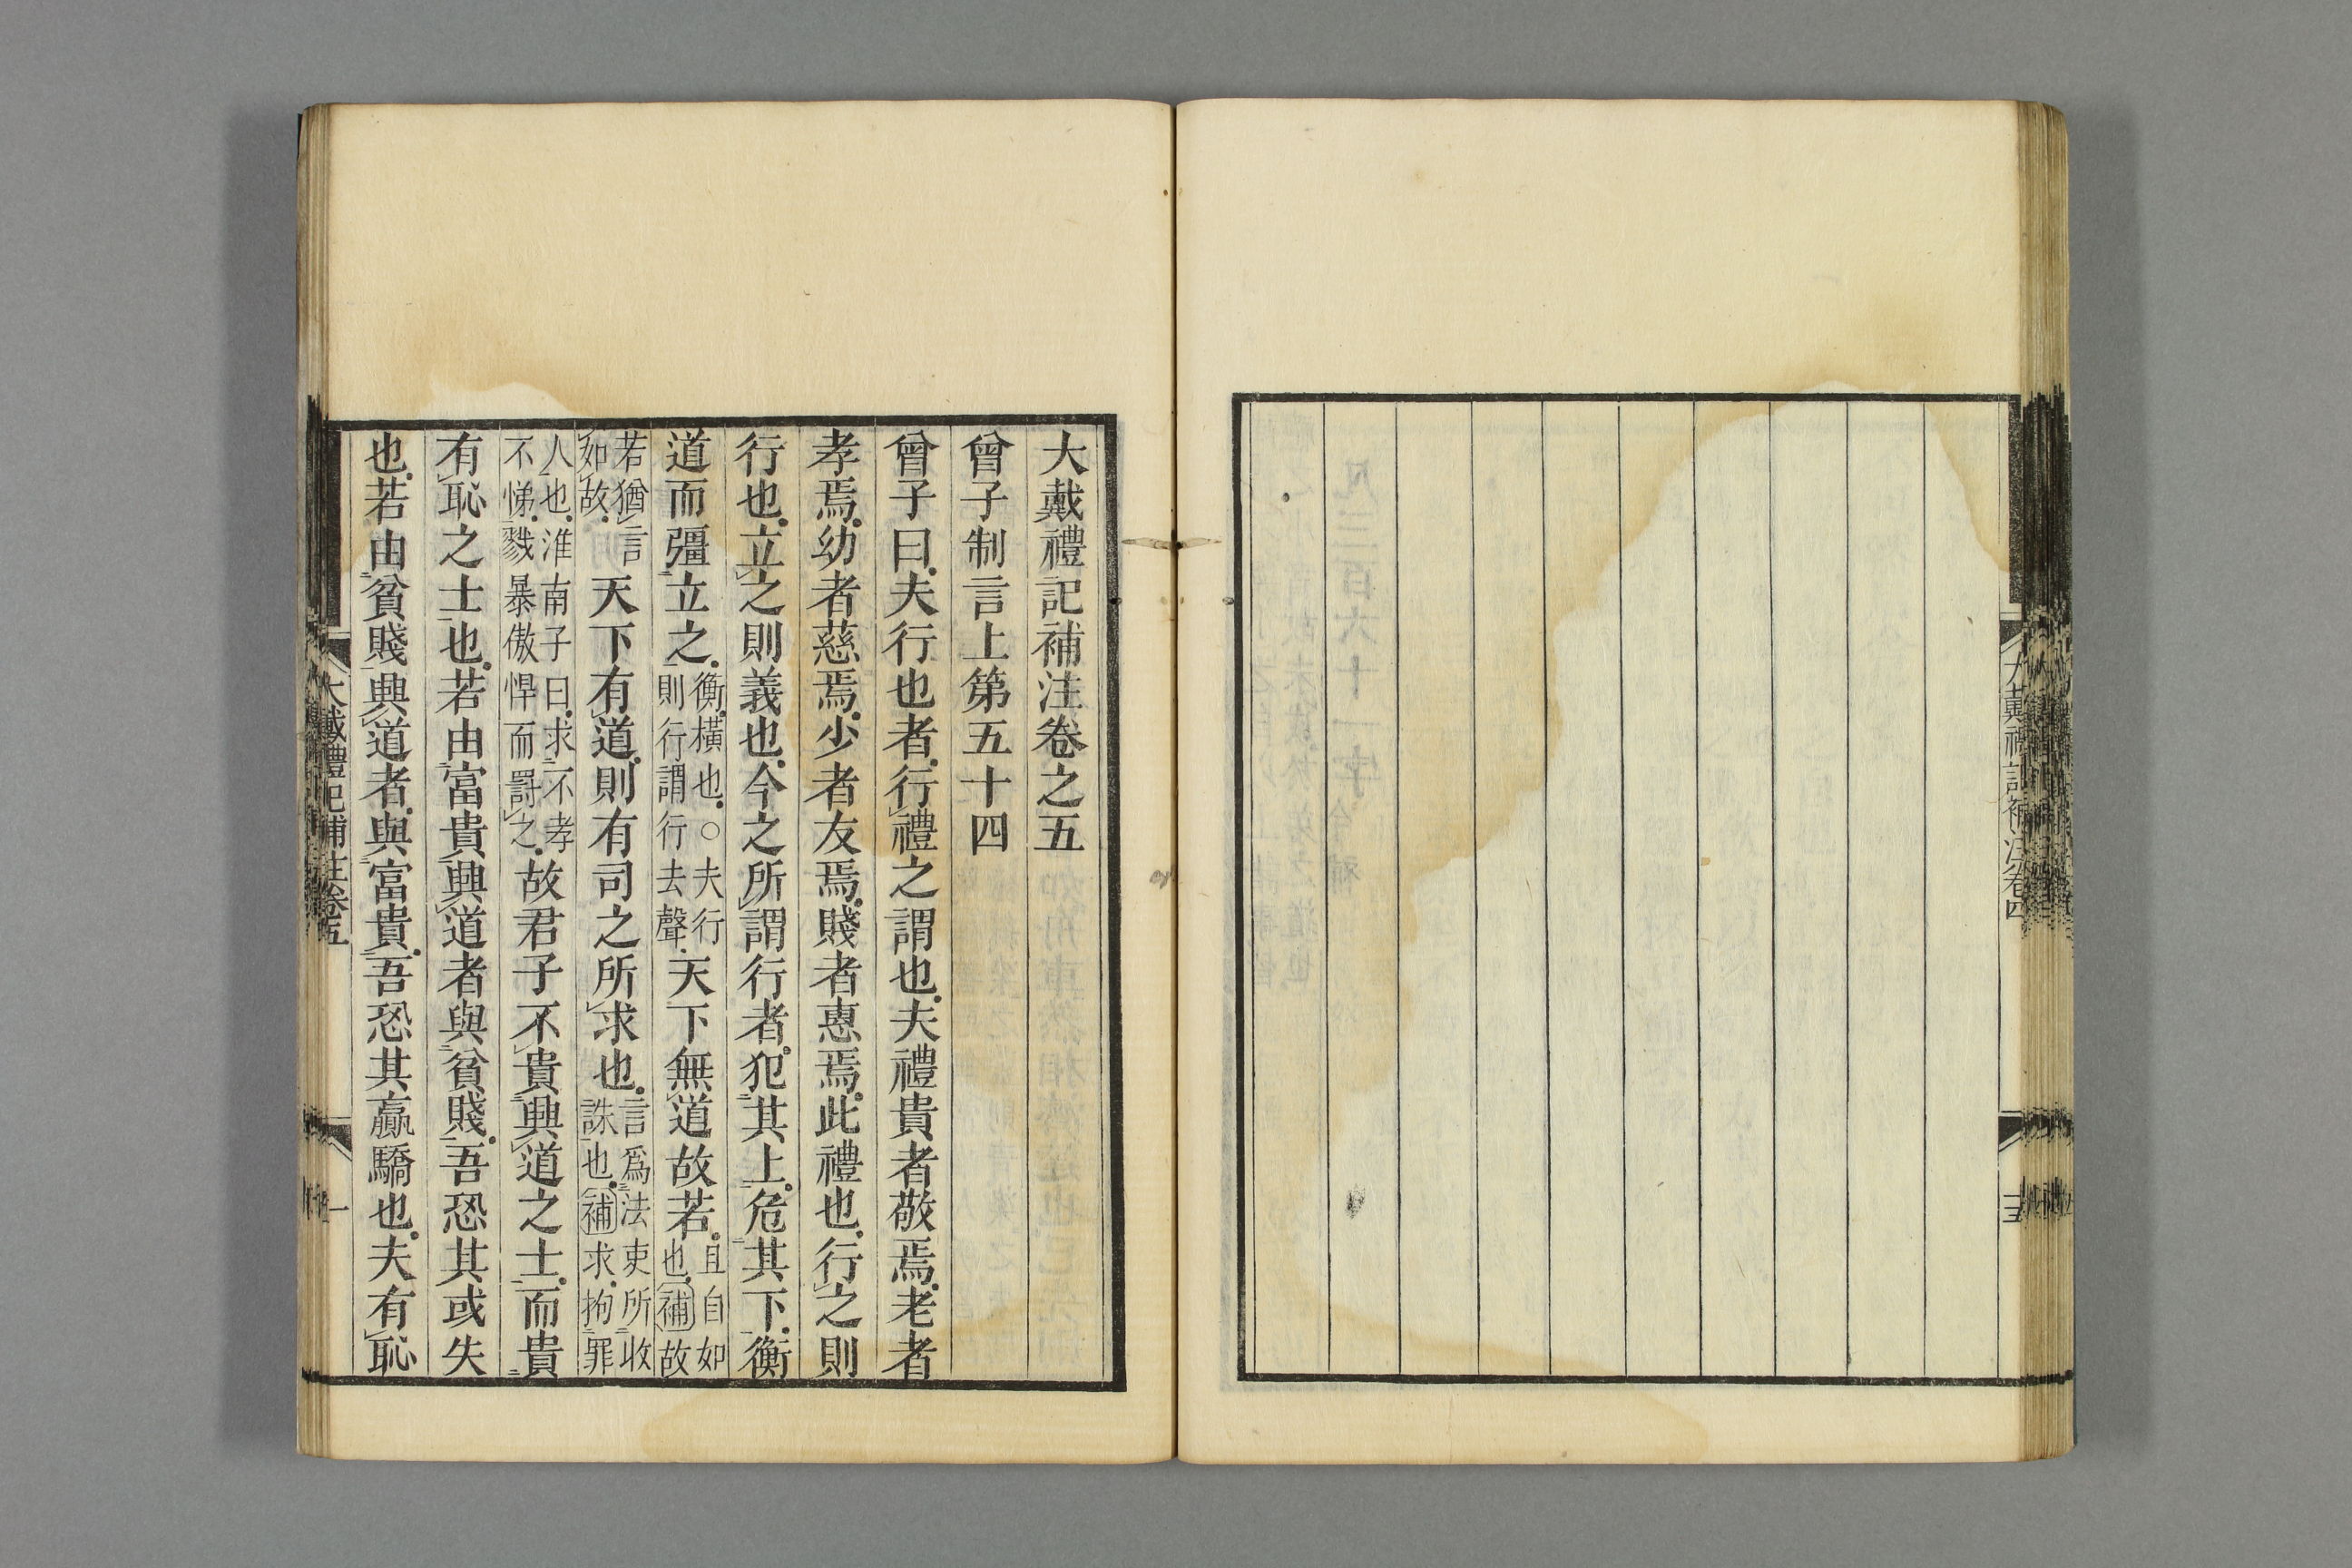 大戴禮記補注卷四
大戴禮記補注卷之五
曾子制言上第五十四
曾子曰夫行也者行禮之謂也夫禮貴者敬焉老者
孝焉幼者慈焉少者友焉賤者惠焉此禮也行之則
行也立之則義也今之所謂行者犯其上危其下衡
道而彊立之衡橫也○夫行則行謂行去聲天下無道故若且自如也補故
若猶言如故天下有道則有司之所求也言爲法吏所收誅也補求拘罪
人也淮南子曰求不孝不悌戮暴傲悍而罰之故君子不貴興道之士而貴
有恥之士也若由富貴興道者與貧賤吾恐其或失
也若由貧賤興道者與富貴吾恐其贏驕也夫有恥
大戴禮記補註卷五
一